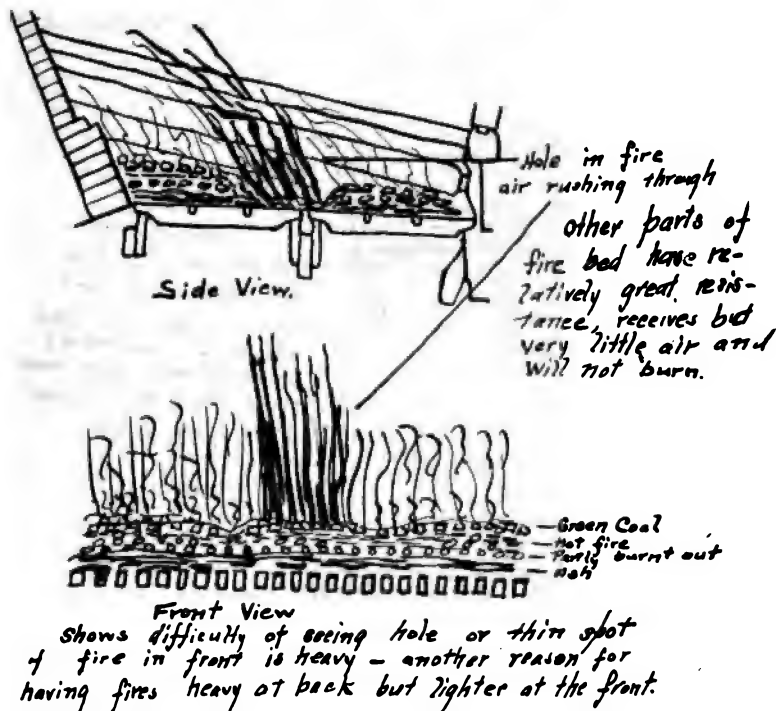 Hole in fire
air rushing through
other parts of
fire bed have re-
latively great resis-
tance, receives but
very little air and
will not burn.
Side View.
Green Coal
Hot fire
Partly burnt out
Ash
Front View
shows difficulty of seeing hole or thin spot
if fire in front is heavy - another reason for
having fires heavy at back but lighter at the front.